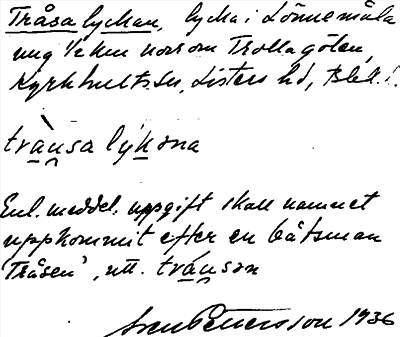 Tråsalyckan, lycka i Lönnemåla
ung ½ km norr om Trollagölen,
Kyrkhults sn, Listers hd, Blek. l.
tràu̯sa lýkəna
Enl. meddel. uppgift skall namnet
uppkommit efter en båtsman
'Tråsen', utt. tráu̯sən
Sven Pettersson 1936